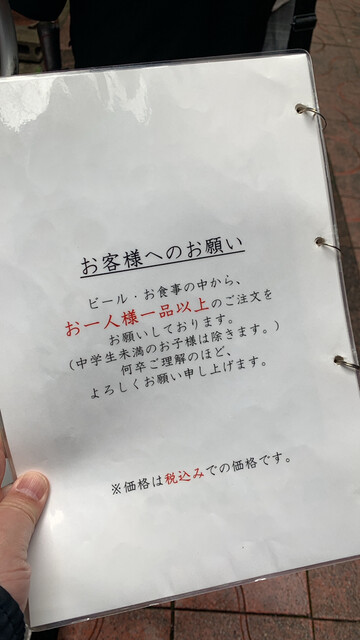 お客様へのお願い
ビール・お食事の中から、
お一人様一品以上のご注文を
お願いしております。
(中学生未満のお子様は除きます。)
何卒ご理解のほど、
よろしくお願い申し上げます。
※価格は税込みでの価格です。